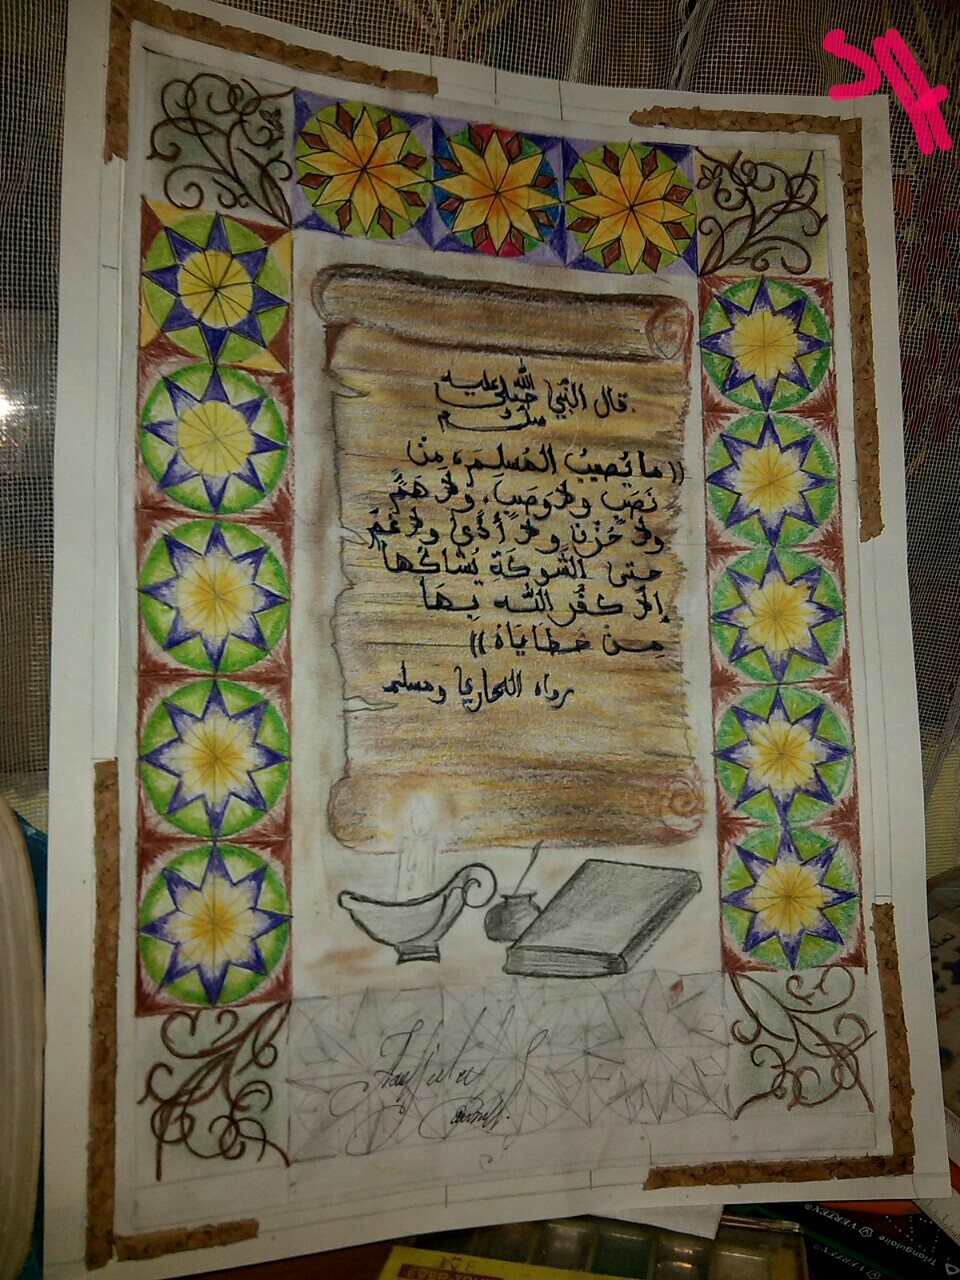 SH
قال النّبي صلى الله عليه
وسلم
((ما يُصيبُ المُسلِمَ، مِنْ
نَصَبٍ ولا وَصَبٍ، ولا هَمٍّ
ولا حُزْنٍ ولا أذًى ولا غَمٍّ
حتى الشَّوكَةِ يُشاكُها
إلا كفَّر اللّه بِهَا
مِنْ خطَايَاهُ))
رواه البخاري ومسلم
VERTEX
Triangulaire VERTEX